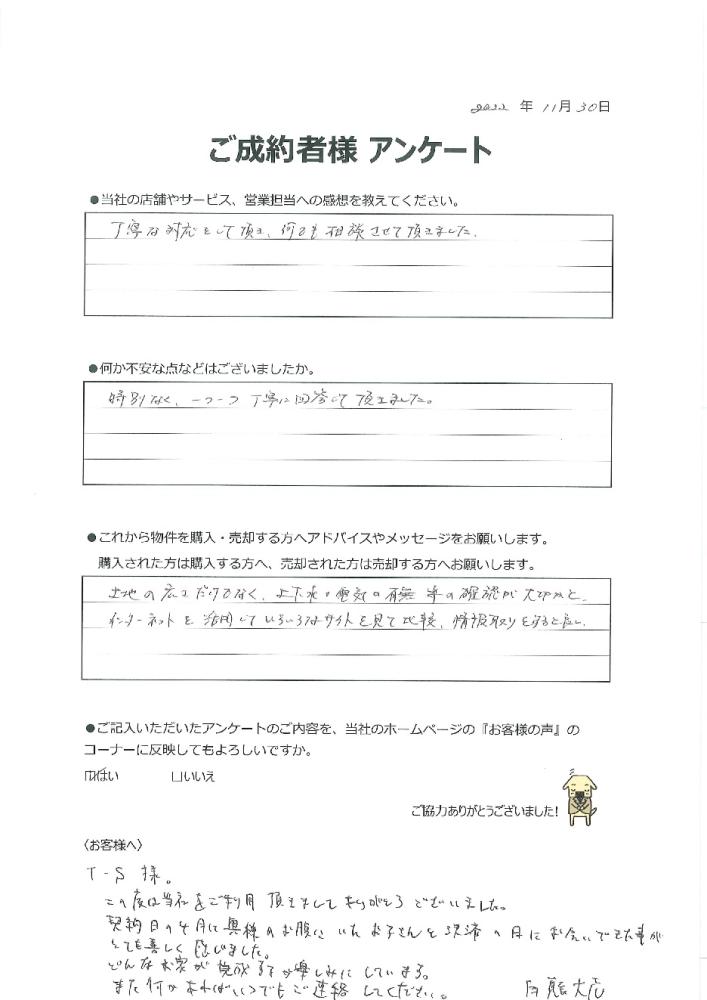 2022 年 11月 30日
ご成約者様 アンケート
●当社の店舗やサービス、営業担当への感想を教えてください。
丁寧な対応をして頂き、何でも相談させて頂きました。
●何か不安な点などはございましたか。
特別なく、一つ一つ丁寧に回答して頂きました。
●これから物件を購入・売却する方へアドバイスやメッセージをお願いします。
購入された方は購入する方へ、売却された方は売却する方へお願いします。
土地の広さだけでなく、上下水・電気の有無 等の確認が大切かと。
インターネットを活用していろいろなサイトを見て比較、情報取りをすると良い。
●ご記入いただいたアンケートのご内容を、当社のホームページの『お客様の声』の
コーナーに反映してもよろしいですか。
☑はい □いいえ
ご協力ありがとうございました！
〈お客様へ〉
T-S 様。
この度は当社をご利用頂きましてありがとうございました。
契約日の4月に奥様のお腹にいたお子さんと決済の日にお会いできた事が
とても喜しく感じました。
どんなお家が完成するか楽しみにしています。
また何かあればいつでもご連絡してください。